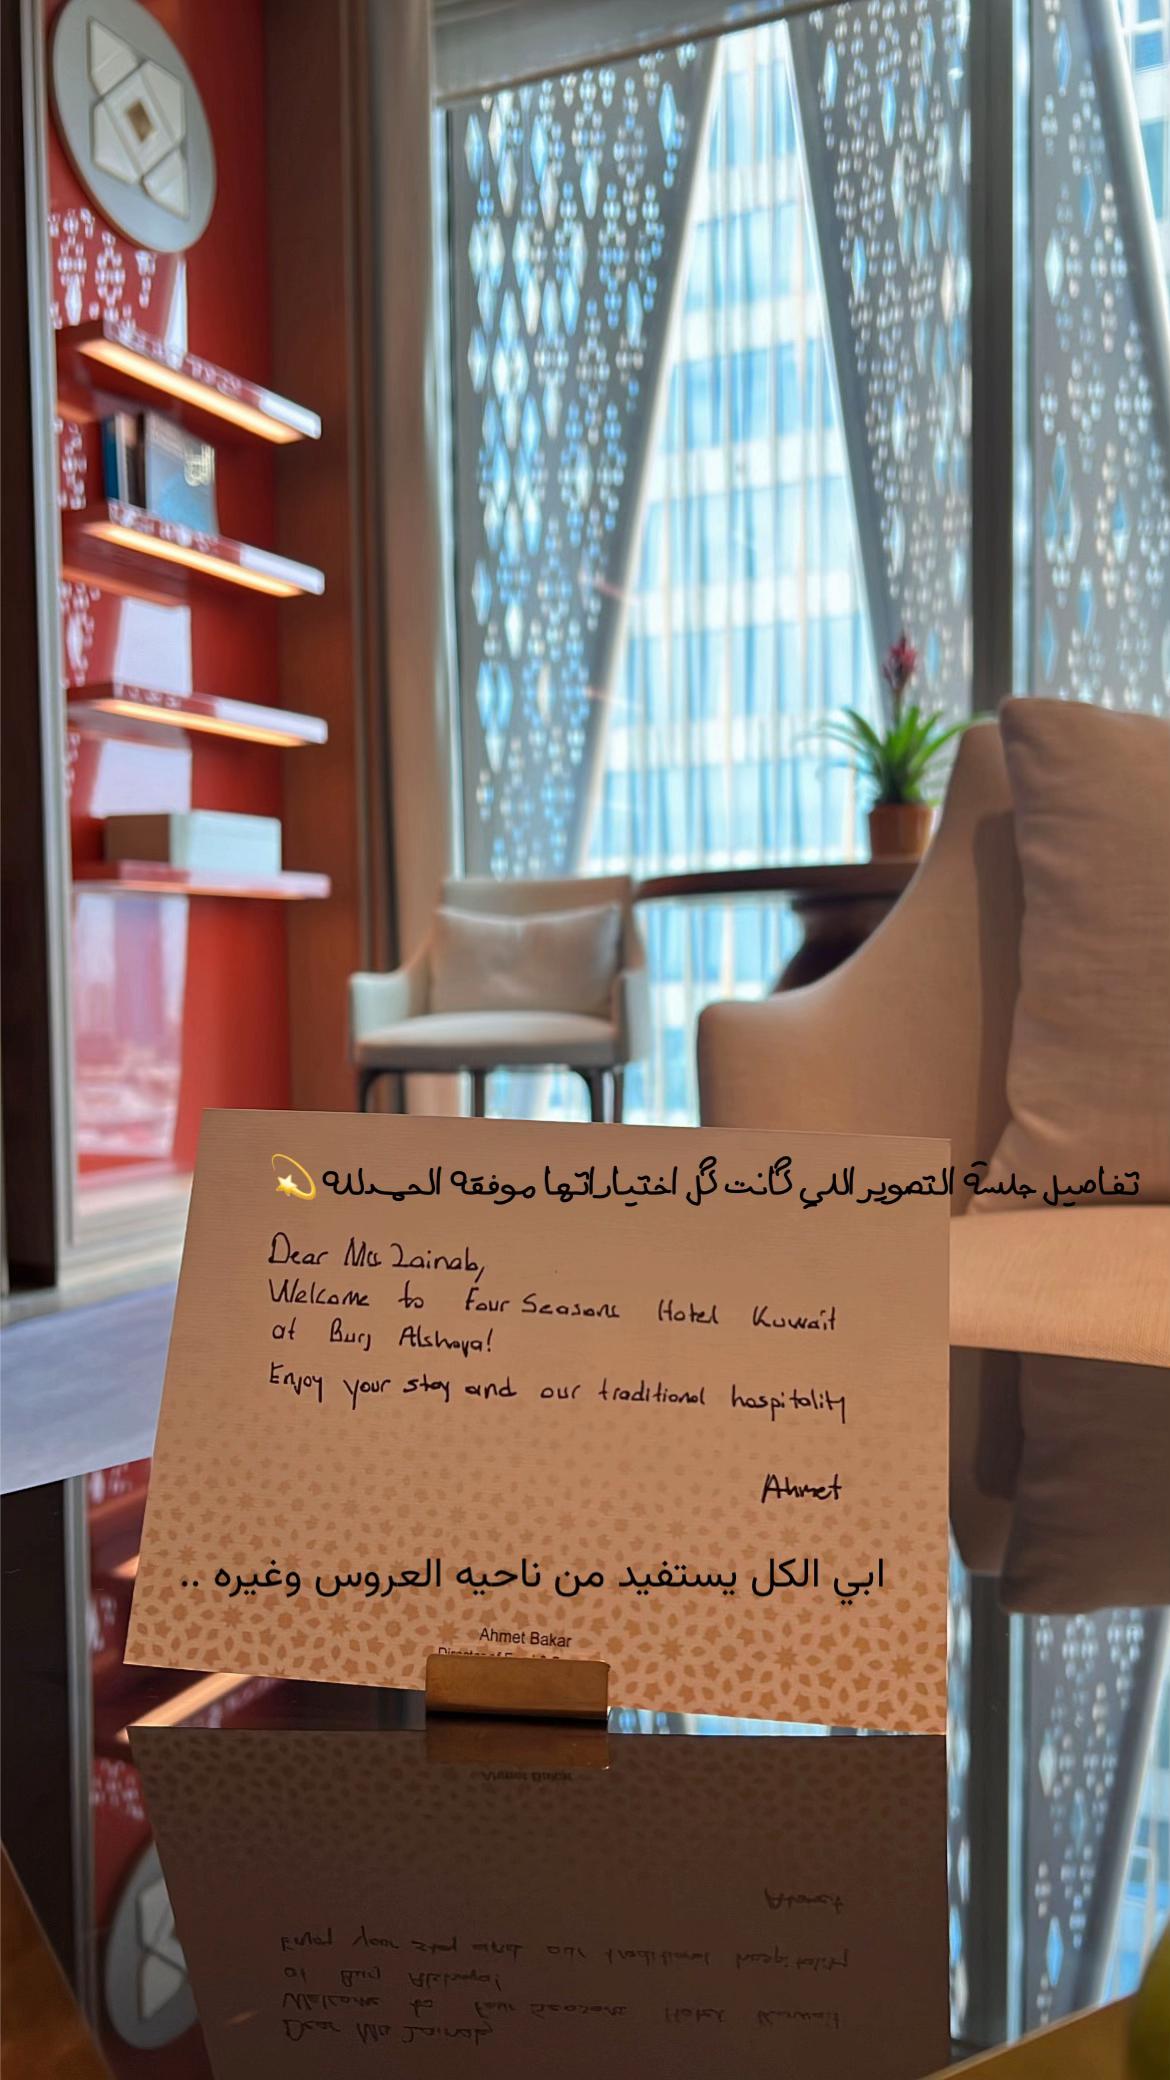 تفاصيل جلسة التصوير اللي كانت كل اختياراتها موفقه الحمدلله 💫
Dear Ms Zainab,
Welcome to Four Seasons Hotel Kuwait
at Burj Alshaya!
Enjoy your stay and our traditional hospitality
Ahmet
ابي الكل يستفيد من ناحيه العروس وغيره ..
Ahmet Bakar
Director of